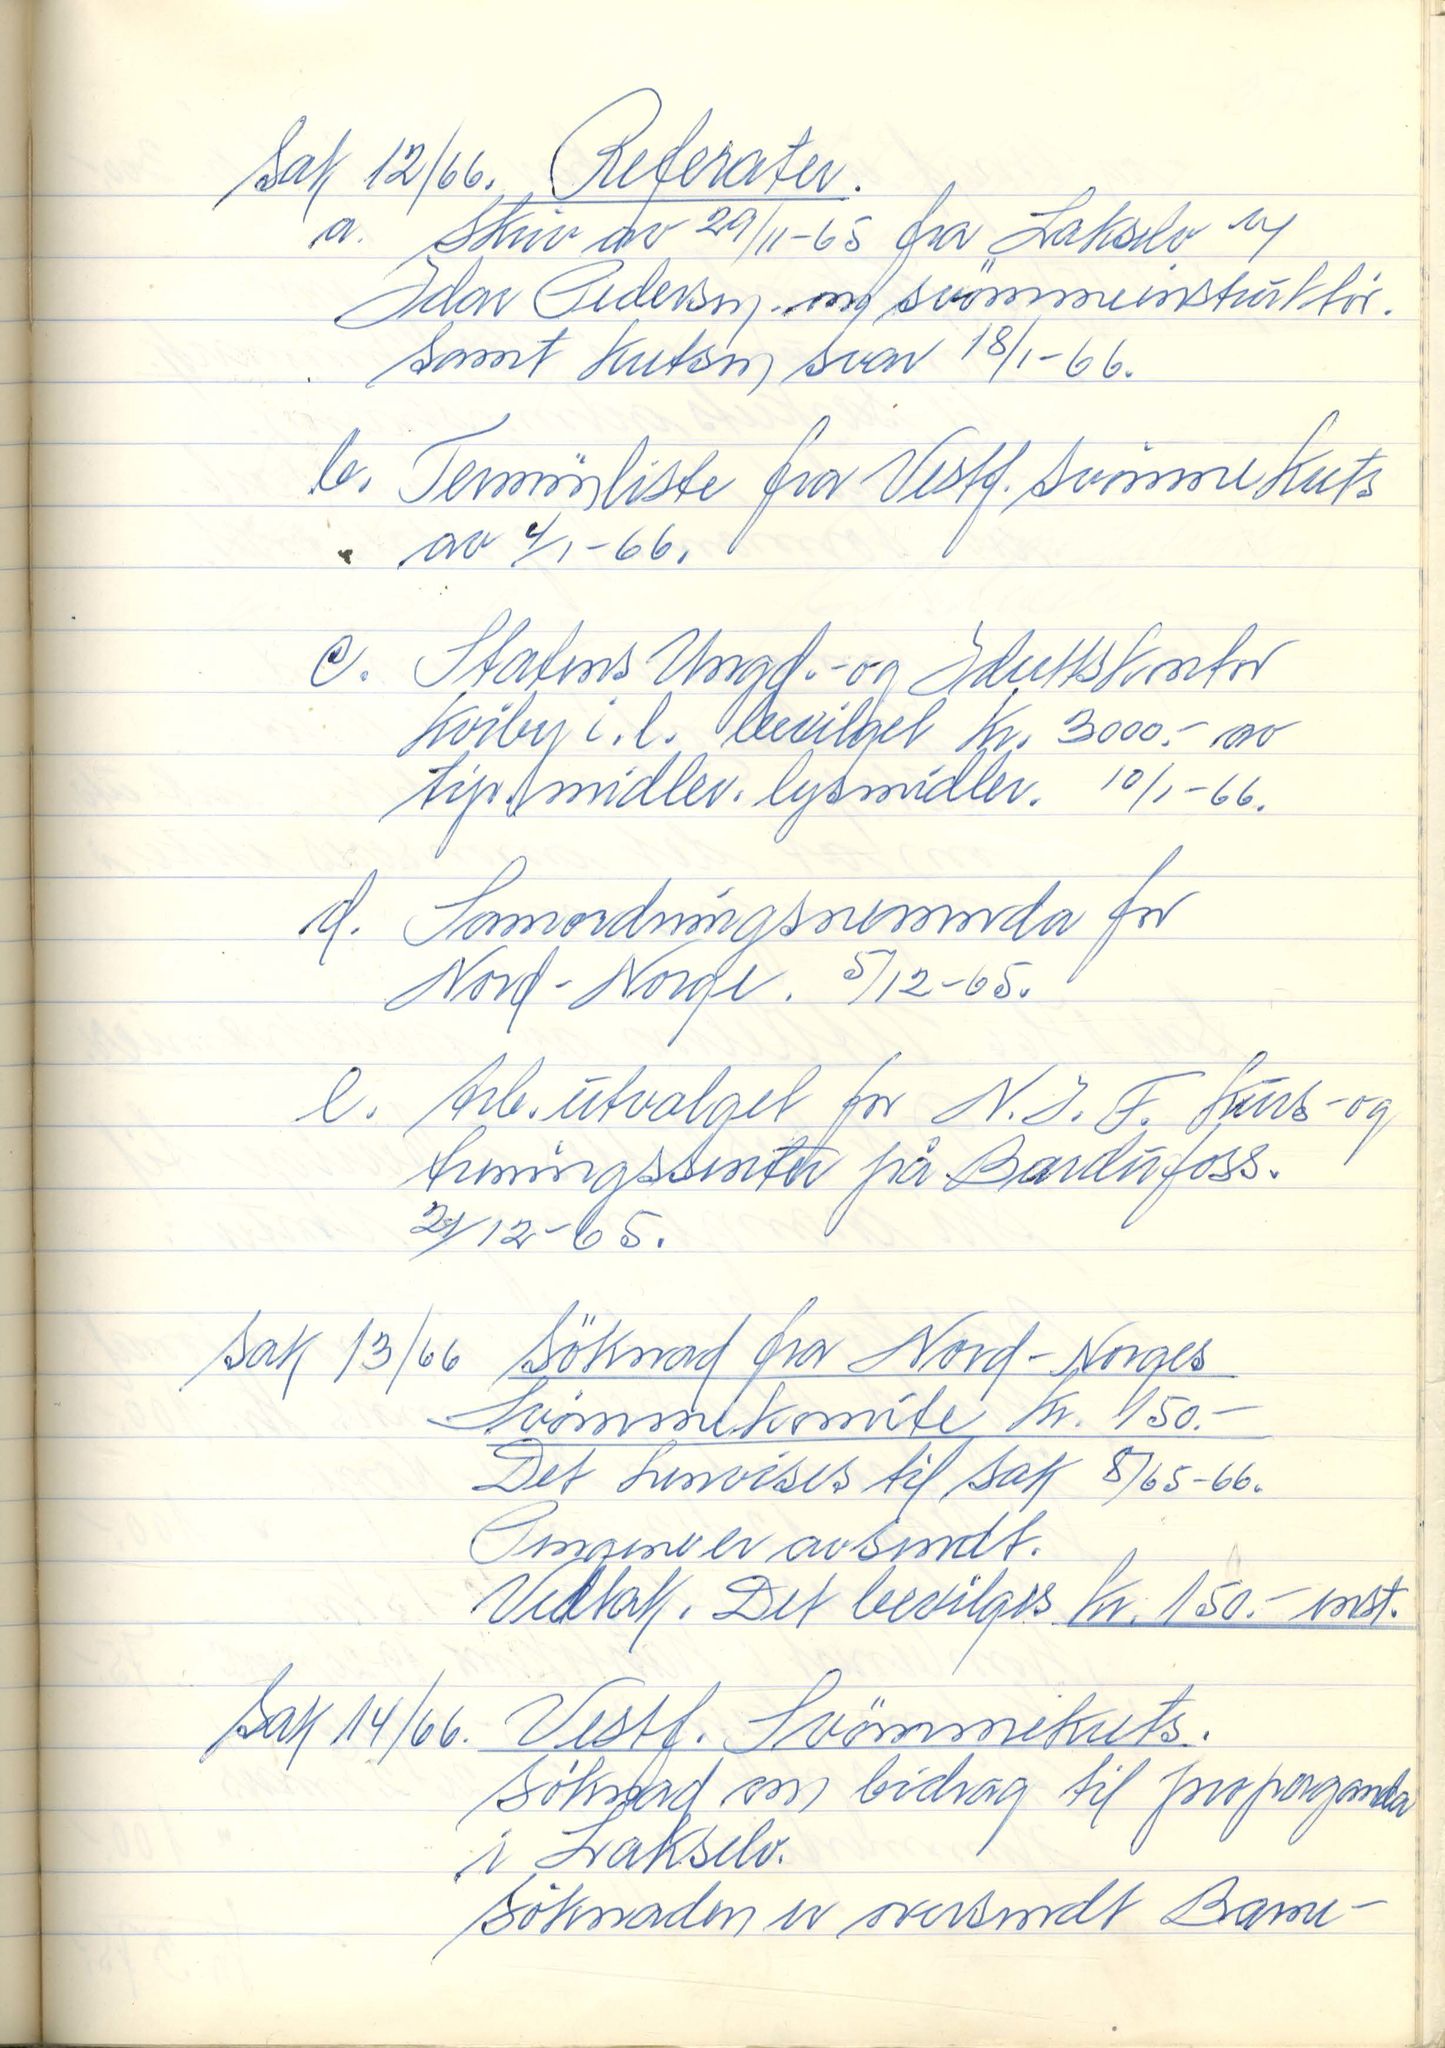 Sak 12/66. Referater.
a. Skriv av 29/11-65 fra Lakselv v/
Idar Pedersen om svömmeinstruktör.
Samt kretsens svar 18/1-66.
b. Terminliste fra Vestf. svömmekrets
av 4/1-66.
c. Statens Ungd.- og Idrettskontor
Kviby i.l. bevilget kr. 3000.- av
tip.midler. lysmidler. 10/1-66.
d. Samordningsnemnda for
Nord-Norge. 5/12-65.
e. Arb.utvalget for N.I.F. kurs- og
treningssenter på Bardufoss.
21/12-65.
Sak 13/66 Söknad fra Nord-Norges
Svömmekomite kr. 150.-
Det henvises til sak 8/65-66.
Pengene er avsendt.
Vedtak. Det bevilges kr. 150.- enst.
Sak 14/66. Vestf. Svömmekrets.
Söknad om bidrag til propaganda
i Lakselv.
Söknaden er oversendt Barne-